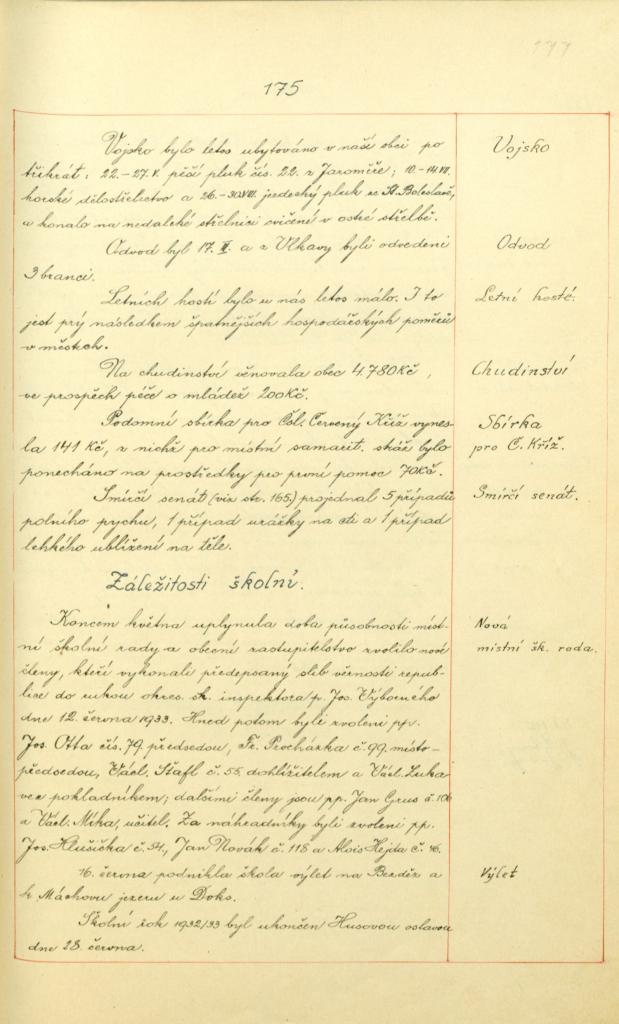 175
Vojsko bylo letos ubytováno v naší obci po
Vojsko
třikrát: 22.–27.V. pěší pluk čís. 22. z Jaroměře; 10.–14.VII.
horské dělostřelectvo a 26.–30.VIII. jezdecký pluk ze St. Boleslavě,
a konalo na nedaleké střelnici cvičení v ostré střelbě.
Odvod byl 17. a z Vlkavy byli odvedeni
Odvod
3 branci.
Letních hostí bylo u nás letos málo. I to
Letní hosté.
jest prý následkem špatnějších hospodářských poměrů
v městech.
Na chudinství věnovala obec 4.780 Kč,
Chudinství
ve prospěch péče o mládež 200 Kč.
Podomní sbírka pro Čsl. Červený Kříž vynes-
Sbírka
la 141 Kč, z nichž pro místní samarit. bylo
pro Č. Kříž.
ponecháno na prostředky pro první pomoc 70 Kč.
Smírčí senát (viz str. 165.) projednal 5 případů
Smírčí senát.
polního pychu, 1 případ urážky na cti a 1 případ
lehkého ublížení na těle.
Záležitosti školní.
Koncem května uplynula doba působnosti míst-
Nová
ní školní rady a obecní zastupitelstvo zvolilo nové
místní šk. rada.
členy, kteří vykonali předepsaný slib věrnosti repub-
lice do rukou okres. šk. inspektora p. Jos. Výborného
dne 12. června 1933. Hned potom byli zvoleni pp.
Jos. Otta čís. 79. předsedou, Fr. Procházka č. 99. místo-
předsedou, Václ. Štafl č. 55. dohlížitelem a Václ. Luka-
vec pokladníkem; dalšími členy jsou pp. Jan Grus č. 106
a Václ. Míka, učitel. Za náhradníky byli zvoleni pp.
Jos. Hlušička č. 54., Jan Novák č. 118 a Alois Hejta č. 16.
16. června podnikla škola výlet na Bezděz a
Výlet
k Máchovu jezeru u Doks.
Školní rok 1932/33 byl ukončen Husovou oslavou
dne 28. června.